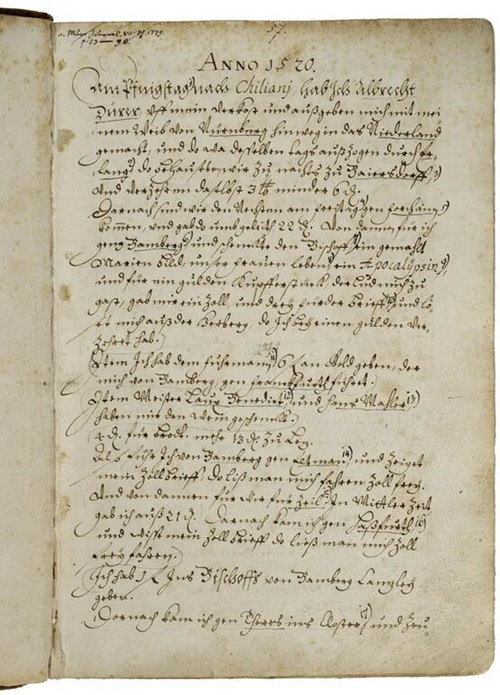 57.
ANNO 1520.
Am Pfingstag nach Chiliani hab Ich Albrecht
Dürer uff mein verkost und außgeben mich mit mei
nem Weib von Nurenberg hinweg in das Niderland
gemacht, und do wir desselben tags außzogen durch Er-
lang, do behausten wir zu nachts zu Baiersdorff
und verzehrten daselbst 3 ₰ minder 6 ₰.
Darnach sind wir den nechsten am freitag gen Forchain
kommen, und gab do umb geleith 22 ₰. Von dannen fuhr ich
gen Bamberg, und schenckte den Bischoff ein gemahlt
Marien bild, unser frauen leben, ein Apocalypsin,
und für ein gulden Kupfferstuck, der lud mich zu
gast, gab mir ein Zoll und drey fürder brieff, und lö
set mich auß der Herberg, do Ich bey einen gulden ver
zehret hab.
Item Ich hab dem fuhrmann 6 fl. an Gold geben, der
mich von Bamberg gen Franckfurth führet.
Item Meister Laux Benedict, und Hans Mahler
haben mir den Wein geschenckt.
4 ₰. für brodt. mehr 13 ₰. zu
Also fuhr Ich von Bamberg gen Eltman, und zeiget
mein Zollbrieff, do ließ man mich fahren Zoll frey.
Und von dannen fuhr wir für Zeil. In mittler Zeit
gab ich auß 21 ₰. Darnach kam ich gen Haßfurth
und wiß mein Zollbrieff, do ließ man mich Zoll
frey fahren.
Ich hab 1 fl. Ins Bischoffs von Bamberg Canzley
geben.
Darnach kam ich gen Theres ins Closter, und zeu-